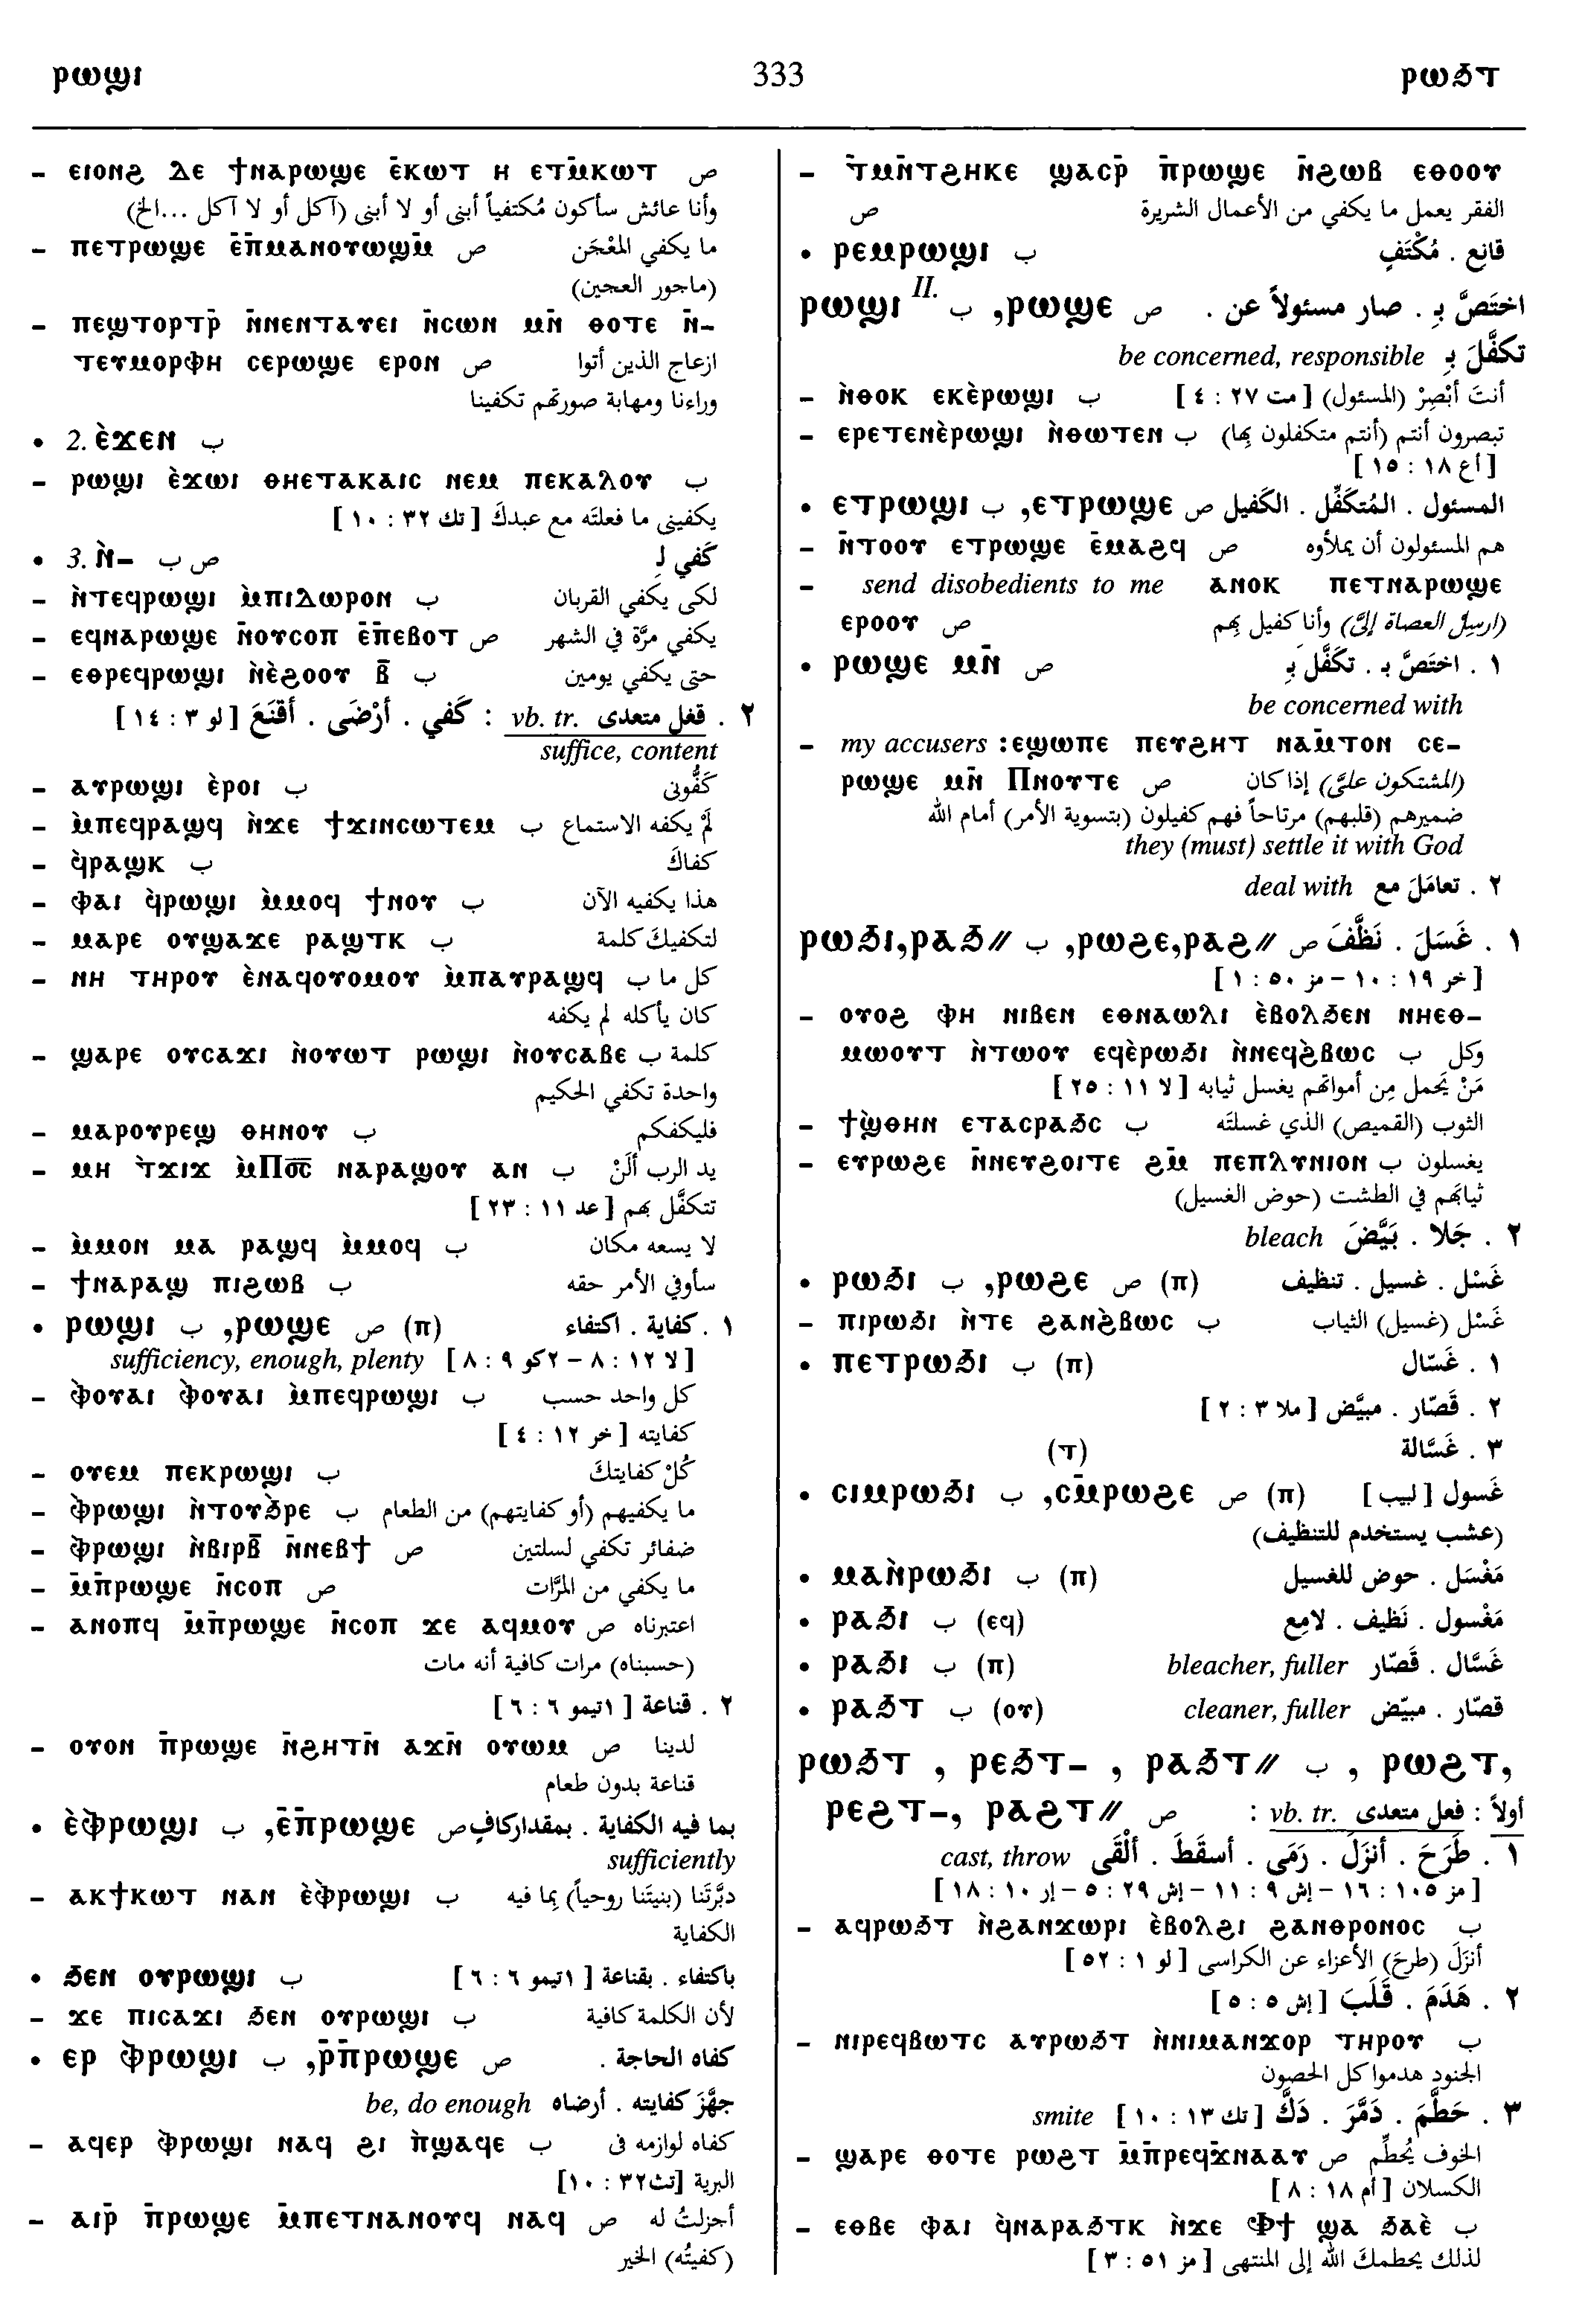 ⲣⲱϣⲓ 333 ⲣⲱϧⲧ
– ⲉⲓⲟⲛϩ ⲇⲉ ϯⲛⲁⲣⲱϣⲉ ⲉ̄ⲕⲱⲧ ⲏ ⲉⲧⲙ̄ⲕⲱⲧ ص
وأنا عائش سأكون مُكتفياً أبنى أو لا أبنى (آكل أو لا آكل ...الخ)
– ⲡⲉⲧⲣⲱϣⲉ ⲉ̄ⲡ̄ⲙⲁⲛⲟⲩⲱϣⲙ̄ ص ما يكفي المعْجَن
(ماجور العجين)
– ⲡⲉϣⲧⲟⲣⲧⲣ̄ ⲛ̄ⲛⲉⲛⲧⲁⲩⲉⲓ ⲛ̄ⲥⲱⲛ ⲙⲛ̄ ⲑⲟⲧⲉ ⲛ̄–
ⲧⲉⲩⲙⲟⲣⲫⲏ ⲥⲉⲣⲱϣⲉ ⲉⲣⲟⲛ ص ازعاج الذين أتوا
وراءنا ومهابة صورتهم تكفينا
• 2. ⲉ̀ϫⲉⲛ ب
– ⲣⲱϣⲓ ⲉ̀ϫⲱⲓ ⲑⲏⲉⲧⲁⲕⲁⲓⲥ ⲛⲉⲙ ⲡⲉⲕⲁⲗⲟⲩ ب
يكفينى ما فعلتَه مع عبدكَ [ تك ٣٢ : ١٠ ]
• 3. ⲛ̀– ص ب كَفي لِـ
– ⲛ̀ⲧⲉϥⲣⲱϣⲓ ⲙ̀ⲡⲓⲇⲱⲣⲟⲛ ب لكى يكفي القربان
– ⲉϥⲛⲁⲣⲱϣⲉ ⲛ̄ⲟⲩⲥⲟⲡ ⲉ̄ⲡⲉⲃⲟⲧ ص يكفي مرَّة في الشهر
– ⲉⲑⲣⲉϥⲣⲱϣⲓ ⲛ̀ⲉ̀ϩⲟⲟⲩ ⲃ̄ ب حتى يكفي يومين
٢ . فعل متعدى vb. tr. : كَفي . أرْضَى . أقنَعَ [ لو ٣ : ١٤ ]
suffice, content
– ⲁⲩⲣⲱϣⲓ ⲉ̀ⲣⲟⲓ ب كَفُّونى
– ⲙ̀ⲡⲉϥⲣⲁϣϥ ⲛ̀ϫⲉ ϯϫⲓⲛⲥⲱⲧⲉⲙ ب لَمْ يكفه الاستماع
– ϥ̀ⲣⲁϣⲕ ب كفاكَ
– ⲫⲁⲓ ϥ̀ⲣⲱϣⲓ ⲙ̀ⲙⲟϥ ϯⲛⲟⲩ ب هذا يكفيه الآن
– ⲙⲁⲣⲉ ⲟⲩϣⲁϫⲉ ⲣⲁϣⲧⲕ ب لتكفيكَ كلمة
– ⲛⲏ ⲧⲏⲣⲟⲩ ⲉ̀ⲛⲁϥⲟⲩⲟⲙⲟⲩ ⲙ̀ⲡⲁⲩⲣⲁϣϥ ب كل ما
كان يأكله لم يكفه
– ϣⲁⲣⲉ ⲟⲩⲥⲁϫⲓ ⲛ̀ⲟⲩⲱⲧ ⲣⲱϣⲓ ⲛ̀ⲟⲩⲥⲁⲃⲉ ب كلمة
واحدة تكفي الحكيم
– ⲙⲁⲣⲟⲩⲣⲉϣ ⲑⲏⲛⲟⲩ ب فليكفكم
– ⲙⲏ ⲧ̀ϫⲓϫ ⲙ̀Ⲡⲟ̄ⲥ̄ ⲛⲁⲣⲁϣⲟⲩ ⲁⲛ ب يد الرب ألَنْ
تتكفَّل بهم [ عد ١١ : ٢٣ ]
– ⲙ̀ⲙⲟⲛ ⲙⲁ ⲣⲁϣϥ ⲙ̀ⲙⲟϥ ب لا يسعه مكان
– ϯⲛⲁⲣⲁϣ ⲡⲓϩⲱⲃ ب سأوفي الأمر حقه
• ⲣⲱϣⲓ ب ,ⲣⲱϣⲉ ص (ⲡ) ١ . كفاية . اكتفاء
sufficiency, enough, plenty [ لا ١٢ : ٨ – ٢كو ٩ : ٨ ]
– ⲫ̀ⲟⲩⲁⲓ ⲫ̀ⲟⲩⲁⲓ ⲙ̀ⲡⲉϥⲣⲱϣⲓ ب كل واحد حسب
كفايته [ خر ١٢ : ٤ ]
– ⲟⲩⲉⲙ ⲡⲉⲕⲣⲱϣⲓ ب كُلْ كفايتكَ
– ⲫ̀ⲣⲱϣⲓ ⲛ̀ⲧⲟⲩϧ̀ⲣⲉ ب ما يكفيهم (أو كفايتهم) من الطعام
– ⲫ̀ⲣⲱϣⲓ ⲛ̀ⲃⲓⲣⲃ̄ ⲛ̄ⲛⲉⲃϯ ص ضفائر تكفي لسلتين
– ⲙ̄ⲡ̄ⲣⲱϣⲉ ⲛ̄ⲥⲟⲡ ص ما يكفي من المرَّات
– ⲁⲛⲟⲡϥ ⲙ̄ⲡ̄ⲣⲱϣⲉ ⲛ̄ⲥⲟⲡ ϫⲉ ⲁϥⲙⲟⲩ ص اعتبرناه
(حسبناه) مرات كافية أنه مات
٢ . قناعة [ ١تيمو ٦ : ٦ ]
– ⲟⲩⲟⲛ ⲡ̄ⲣⲱϣⲉ ⲛ̄ϩⲏⲧⲛ̄ ⲁϫⲛ̄ ⲟⲩⲱⲙ ص لدينا
قناعة بدون طعام
• ⲉ̀ⲫ̀ⲣⲱϣⲓ ب ,ⲉ̄ⲡ̄ⲣⲱϣⲉ ص بما فيه الكفاية . بمقدار كافٍ
sufficiently
– ⲁⲕϯⲕⲱⲧ ⲛⲁⲛ ⲉ̀ⲫ̀ⲣⲱϣⲓ ب دبَّرتَنا (بنيتَنا روحياً) بما فيه
الكفاية
• ϧⲉⲛ ⲟⲩⲣⲱϣⲓ ب باكتفاء . بقناعة [ ١تيمو ٦ : ٦ ]
– ϫⲉ ⲡⲓⲥⲁϫⲓ ϧⲉⲛ ⲟⲩⲣⲱϣⲓ ب لأن الكلمة كافية
• ⲉⲣ ⲫ̀ⲣⲱϣⲓ ب ,ⲣ̄ⲡ̄ⲣⲱϣⲉ ص كفاه الحاجة .
جهَّزَ كفايته . أرضاه be, do enough
– ⲁϥⲉⲣ ⲫ̀ⲣⲱϣⲓ ⲛⲁϥ ϩⲓ ⲡ̀ϣⲁϥⲉ ب كفاه لوازمه فى
البرية [تث٣٢ : ١٠]
– ⲁⲓⲣ̄ ⲡ̄ⲣⲱϣⲉ ⲙ̄ⲡⲉⲧⲛⲁⲛⲟⲩϥ ⲛⲁϥ ص أجزلتُ له
(كفيتُه) الخير
– ⲧ̄ⲙⲛ̄ⲧϩⲏⲕⲉ ϣⲁⲥⲣ̄ ⲡ̄ⲣⲱϣⲉ ⲛ̄ϩⲱⲃ ⲉⲑⲟⲟⲩ
الفقر يعمل ما يكفي من الأعمال الشريرة ص
• ⲣⲉⲙⲣⲱϣⲓ ب قانع . مُكْتَفٍ
ⲣⲱϣⲓ II. ب ,ⲣⲱϣⲉ ص اختَصَّ بِـ . صار مسئولاً عن .
تكفَّلَ بِـ be concerned, responsible
– ⲛ̀ⲑⲟⲕ ⲉⲕⲉ̀ⲣⲱϣⲓ ب أنتَ أبْصِرْ (المسئول) [ مت ٢٧ : ٤ ]
– ⲉⲣⲉⲧⲉⲛⲉ̀ⲣⲱϣⲓ ⲛ̀ⲑⲱⲧⲉⲛ ب تبصرون أنتم (أنتم متكفلون بها)
[ أع ١٨ : ١٥ ]
• ⲉⲧⲣⲱϣⲓ ب ,ⲉⲧⲣⲱϣⲉ ص المسئول . المُتكَفِّل . الكَفيل
– ⲛ̄ⲧⲟⲟⲩ ⲉⲧⲣⲱϣⲉ ⲉ̄ⲙⲁϩϥ ص هم المسئولون أن يملأوه
– send disobedients to me ⲁⲛⲟⲕ ⲡⲉⲧⲛⲁⲣⲱϣⲉ
ⲉⲣⲟⲟⲩ ص (ارسِل العصاة إلىَّ) وأنا كفيل بهم
• ⲣⲱϣⲉ ⲙⲛ̄ ص ١ . اختَصَّ بـ . تكَفَّل بِـ
be concerned with
– my accusers :ⲉϣⲱⲡⲉ ⲡⲉⲩϩⲏⲧ ⲛⲁⲙ̄ⲧⲟⲛ ⲥⲉ–
ⲣⲱϣⲉ ⲙⲛ̄ Ⲡⲛⲟⲩⲧⲉ ص (المشتكون علىَّ) إذا كان
ضميرهم (قلبهم) مرتاحاً فهم كفيلون (بتسوية الأمر) أمام الله
they (must) settle it with God
٢ . تعامَلَ مع deal with
ⲣⲱϧⲓ,ⲣⲁϧ// ب ,ⲣⲱϩⲉ,ⲣⲁϩ// ص ١ . غَسَلَ . نَظَّفَ
[ خر ١٩ : ١٠ – مز ٥٠ : ١ ]
– ⲟⲩⲟϩ ⲫⲏ ⲛⲓⲃⲉⲛ ⲉⲑⲛⲁⲱⲗⲓ ⲉ̀ⲃⲟⲗϧⲉⲛ ⲛⲏⲉⲑ–
ⲙⲱⲟⲩⲧ ⲛ̀ⲧⲱⲟⲩ ⲉϥⲉ̀ⲣⲱϧⲓ ⲛ̀ⲛⲉϥϩ̀ⲃⲱⲥ ب وكل
مَنْ يَحمل مِن أمواتهم يغسل ثيابه [ لا ١١ : ٢٥ ]
– ϯϣ̀ⲑⲏⲛ ⲉⲧⲁⲥⲣⲁϧⲥ ب الثوب (القميص) الذي غسلتَه
– ⲉⲩⲣⲱϩⲉ ⲛ̄ⲛⲉⲩϩⲟⲓⲧⲉ ϩⲙ̄ ⲡⲉⲡⲗⲩⲛⲓⲟⲛ ب يغسلون
ثيابهم في الطشت (حوض الغسيل)
٢ . جَلا . بَيَّضَ bleach
• ⲣⲱϧⲓ ب ,ⲣⲱϩⲉ ص (ⲡ) غَسْل . غسيل . تنظيف
– ⲡⲓⲣⲱϧⲓ ⲛ̀ⲧⲉ ϩⲁⲛϩ̀ⲃⲱⲥ ب غَسْل (غسيل) الثياب
• ⲡⲉⲧⲣⲱϧⲓ ب (ⲡ) ١ . غَسّال
٢ . قَصّار . مبيَّض [ ملا ٣ : ٢ ]
(ⲧ) ٣ . غَسَّالة
• ⲥⲓⲙⲣⲱϧⲓ ب ,ⲥⲙ̄ⲣⲱϩⲉ ص (ⲡ) غَسول [ لبيب ]
(عشب يستخدم للتنظيف)
• ⲙⲁⲛ̀ⲣⲱϧⲓ ب (ⲡ) مَغْسَل . حوض للغسيل
• ⲣⲁϧⲓ ب (ⲉϥ) مَغْسول . نَظيف . لامِع
• ⲣⲁϧⲓ ب (ⲡ) غَسَّال . قَصّار bleacher, fuller
• ⲣⲁϧⲧ ب (ⲟⲩ) قصّار . مبيّض cleaner, fuller
ⲣⲱϧⲧ , ⲣⲉϧⲧ– , ⲣⲁϧⲧ// ب , ⲣⲱϩⲧ,
ⲣⲉϩⲧ–, ⲣⲁϩⲧ// ص أولاً : فعل متعدى vb. tr. :
١ . طَرَحَ . أنزَلَ . رَمَى . أسقَطَ . ألْقَى cast, throw
[ مز ١٠٥ : ١٦ – إش ٩ : ١١ – إش ٢٩ : ٥ – إر ١٠ : ١٨ ]
– ⲁϥⲣⲱϧⲧ ⲛ̀ϩⲁⲛϫⲱⲣⲓ ⲉ̀ⲃⲟⲗϩⲓ ϩⲁⲛⲑⲣⲟⲛⲟⲥ ب
أنزَلَ (طرحَ) الأعزاء عن الكراسى [ لو ١ : ٥٢ ]
٢ . هَدَمَ . قَلَبَ [ إش ٥ : ٥ ]
– ⲛⲓⲣⲉϥⲃⲱⲧⲥ ⲁⲩⲣⲱϧⲧ ⲛ̀ⲛⲓⲙⲁⲛϫⲟⲣ ⲧⲏⲣⲟⲩ ب
الجنود هدموا كل الحصون
٣ . حَطَّمَ . دَمَّرَ . دَكَّ [ تك ١٣ : ١٠ ] smite
– ϣⲁⲣⲉ ⲑⲟⲧⲉ ⲣⲱϩⲧ ⲙ̄ⲡ̄ⲣⲉϥϫ̄ⲛⲁⲁⲩ ص الخوف يُحطِّم
الكسلان [ أم ١٨ : ٨ ]
– ⲉⲑⲃⲉ ⲫⲁⲓ ϥ̀ⲛⲁⲣⲁϧⲧⲕ ⲛ̀ϫⲉ Ⲫϯ ϣⲁ ϧⲁⲉ̀ ب
لذلك يحطمكَ الله إلى المنتهى [ مز ٥١ : ٣ ]